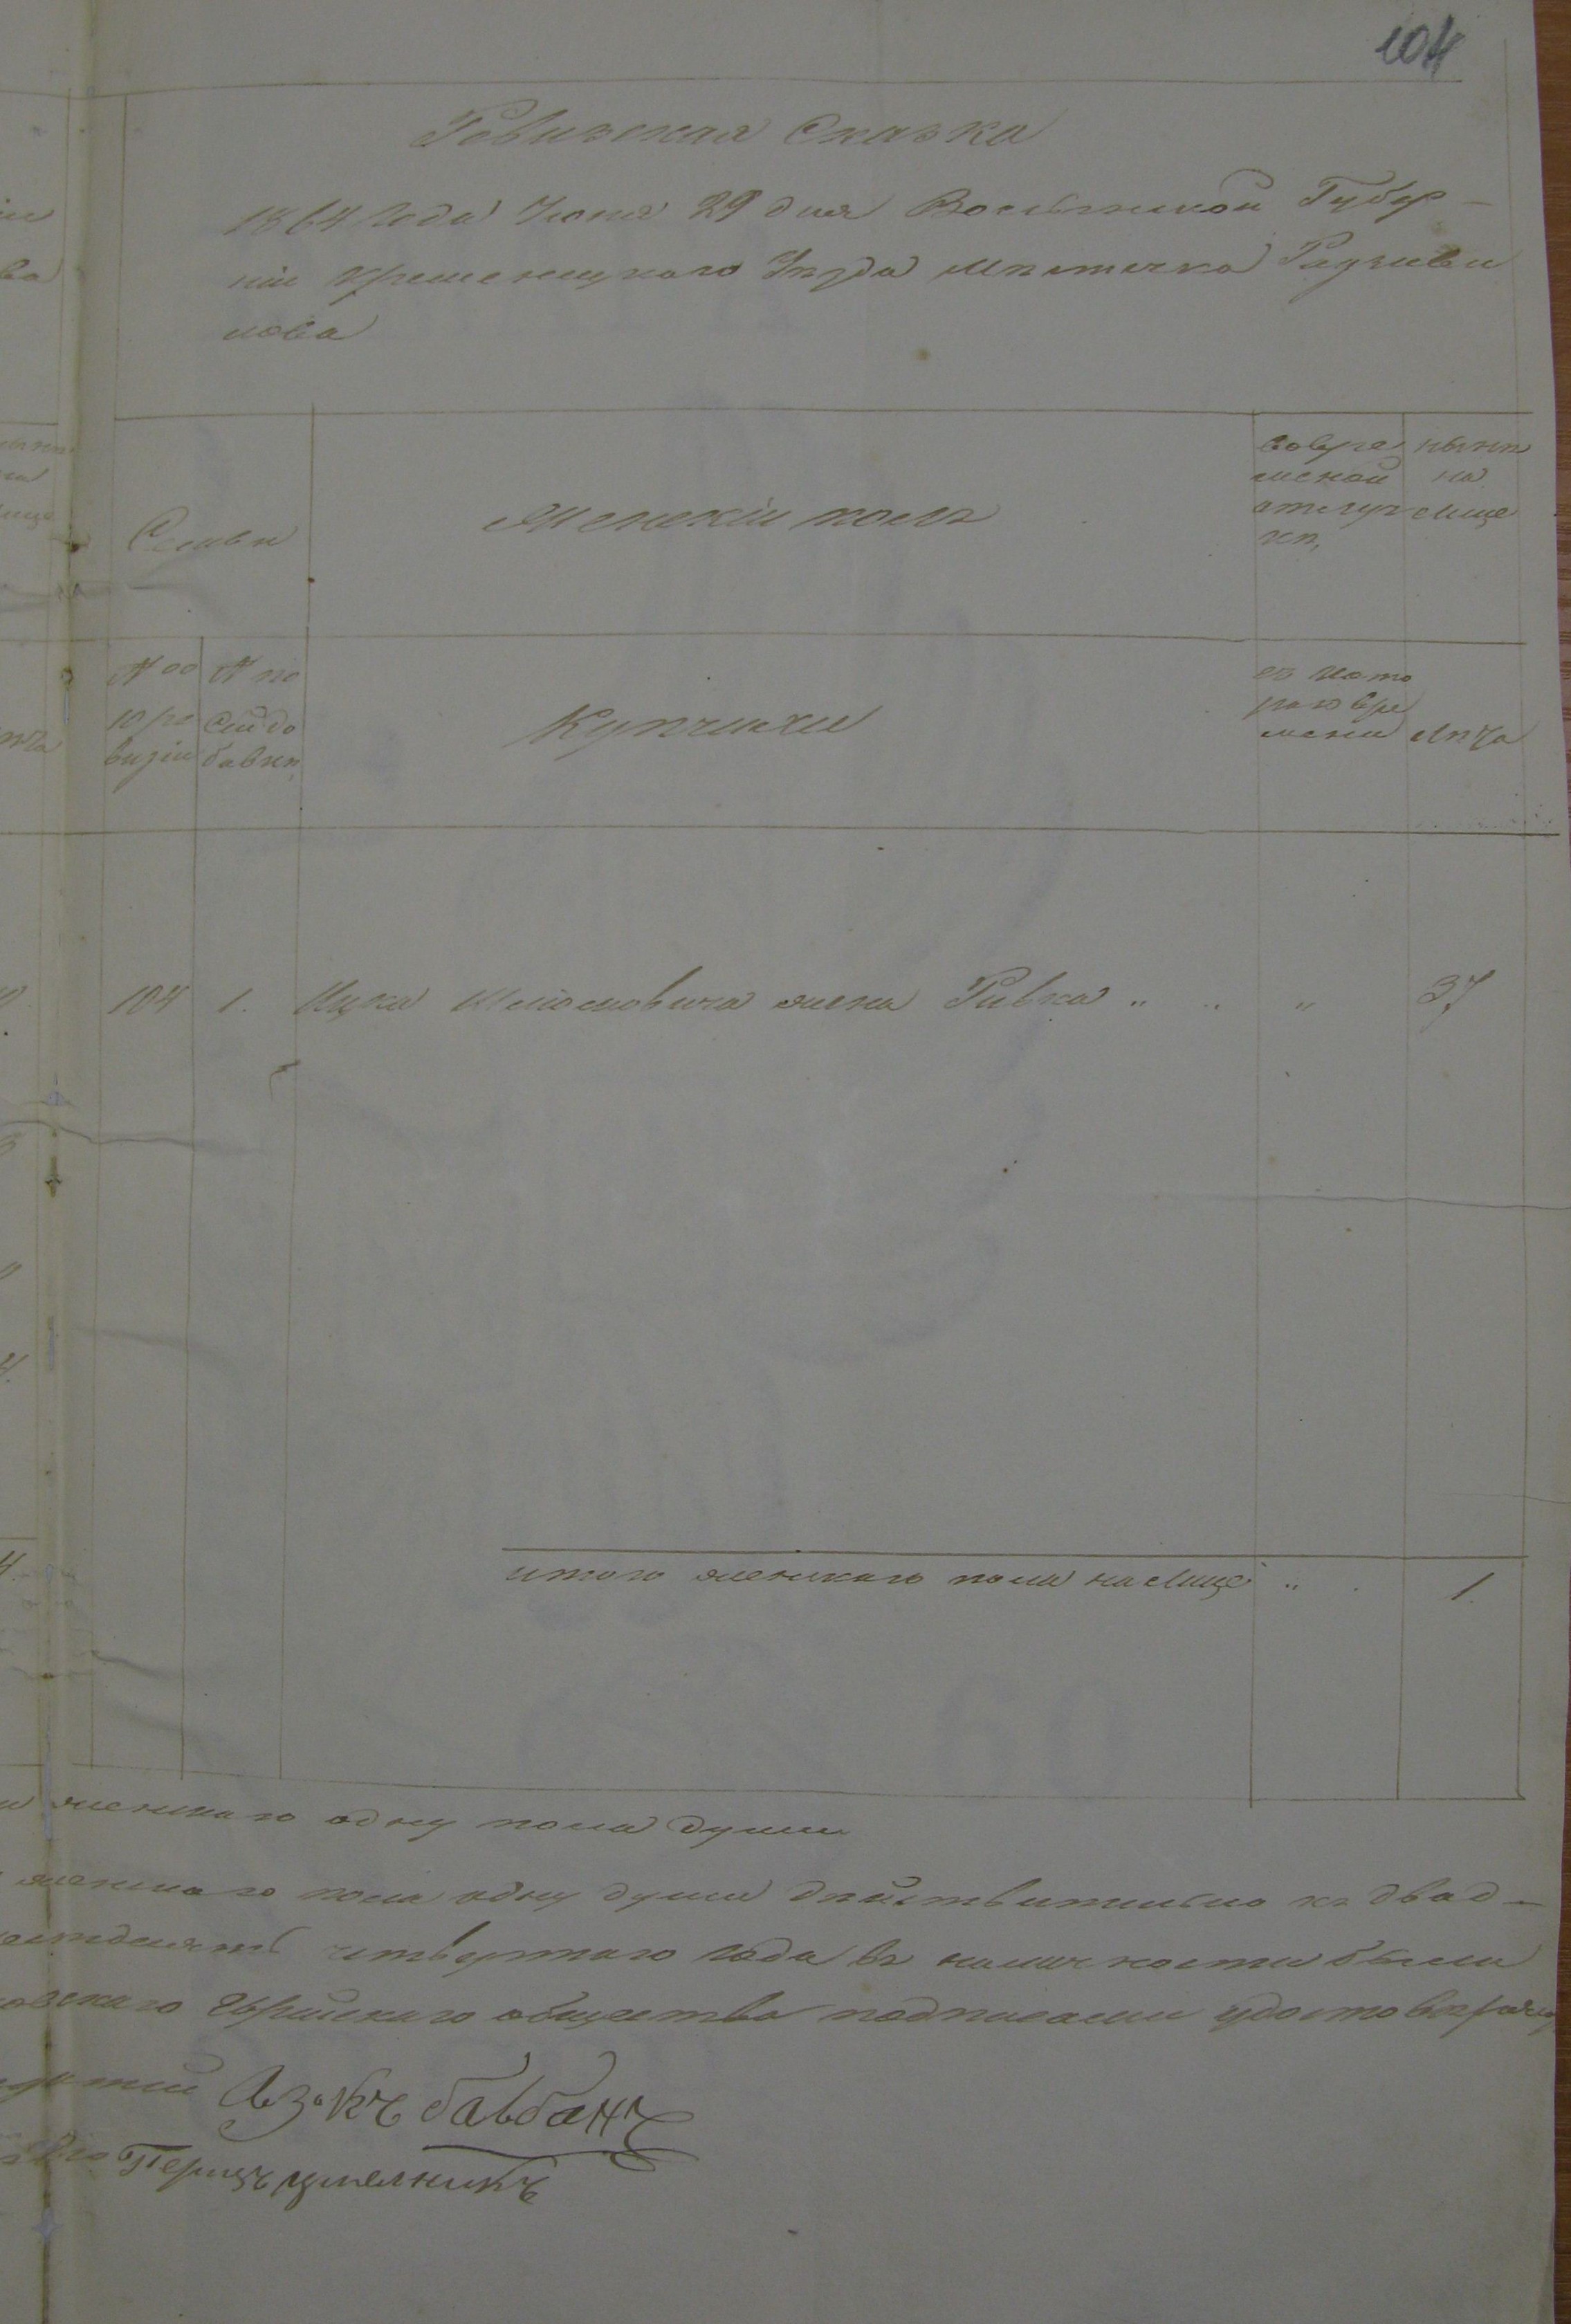 104
Ревизская Сказка
1864 Года Июня 29 дня Волынской Губер-
ніи Кременецкаго Уѣзда Мѣстечка Радзиви
лова
Семьи
Женскій полъ
вовре
менной
отлуч
кѣ,
нынѣ
на
лице
№ по
10 ре
визіи
№ по
Сей до
бавкѣ
Купчихи
съ кото
раго вре
мени
Лѣта
104 1. Ицка Шліомовича жена Ривка " " " 37
итого женскаго пола на лице " 1.
женскаго одну пола души
женскаго пола одну души действительно къ двад-
четвертаго Года въ наличности были
Еврейскаго общества подписами удостовѣряемъ
Перецъ